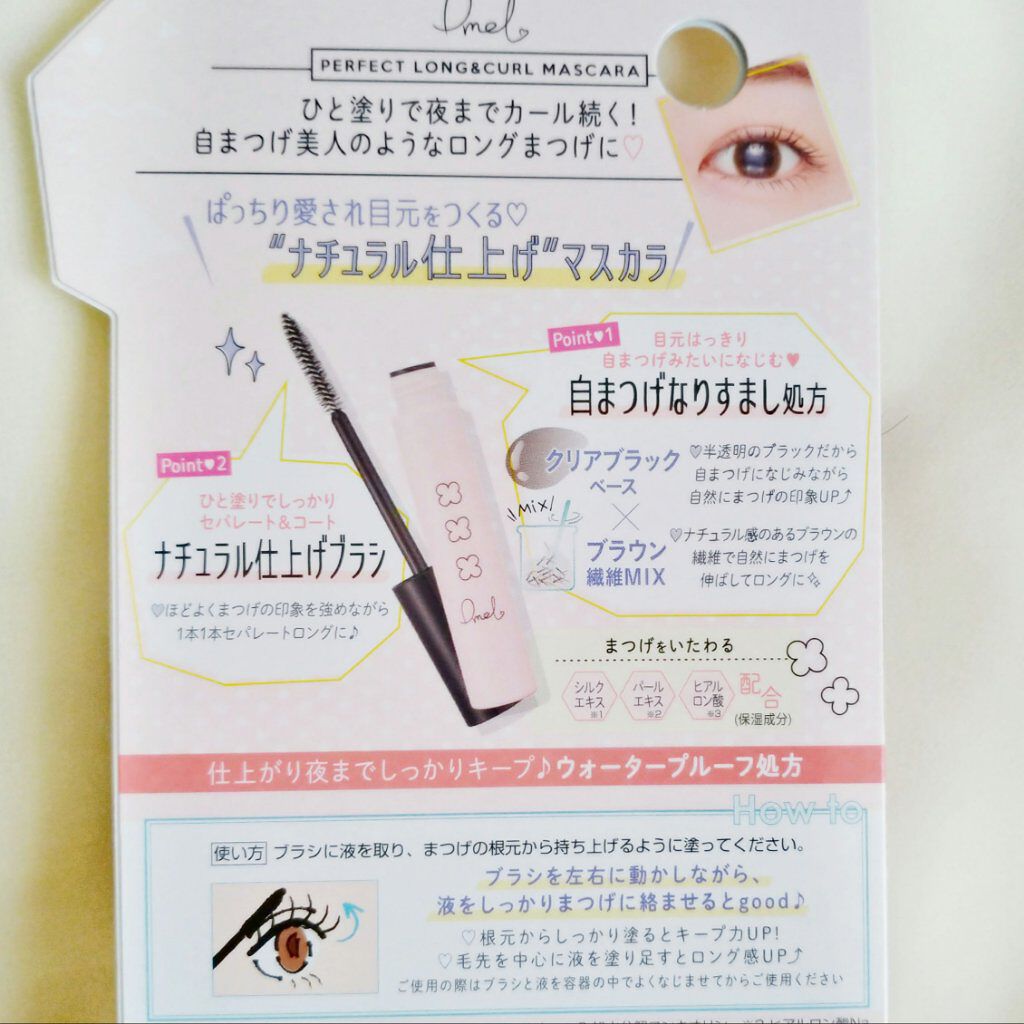 Dmel
PERFECT LONG&CURL MASCARA
ひと塗りで夜までカール続く!
自まつげ美人のようなロングまつげに♡
ぱっちり愛され目元をつくる♡
"ナチュラル仕上げ"マスカラ
Point♥1
目元はっきり
自まつげみたいになじむ♥
自まつげなりすまし処方
クリアブラック
ベース
♡半透明のブラックだから
自まつげになじみながら
自然にまつげの印象UP⤴
MIX
×
ブラウン
繊維MIX
♡ナチュラル感のあるブラウンの
繊維で自然にまつげを
伸ばしてロングに✨
Point♥2
ひと塗りでしっかり
セパレート&コート
ナチュラル仕上げブラシ
♡ほどよくまつげの印象を強めながら
1本1本セパレートロングに♪
Dmel
まつげをいたわる
シルク
エキス
※1
パール
エキス
※2
ヒアル
ロン酸
※3
配合
(保湿成分)
仕上がり夜までしっかりキープ♪ウォータープルーフ処方
How to
使い方 ブラシに液を取り、まつげの根元から持ち上げるように塗ってください。
ブラシを左右に動かしながら、
液をしっかりまつげに絡ませるとgood♪
♡根元からしっかり塗るとキープ力UP!
♡毛先を中心に液を塗り足すとロング感UP⤴
ご使用の際はブラシと液を容器の中でよくなじませてからご使用ください